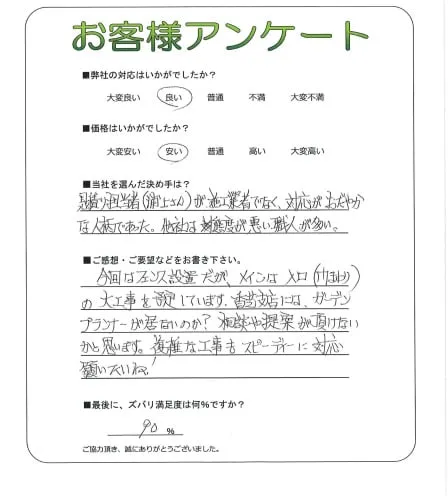 お客様アンケート
■弊社の対応はいかがでしたか?
大変良い 良い 普通 不満 大変不満
■価格はいかがでしたか?
大変安い 安い 普通 高い 大変高い
■当社を選んだ決め手は?
見積り担当者(浦上さん)が施工業者でなく、対応がおだやか
な人柄であった。他社は態度が悪い職人が多い。
■ご感想・ご要望などをお書き下さい。
今回はフェンス設置だが、メインは入口
の大工事を予定しています。には、ガーデン
プランナーが居ないのか?相談や提案が頂けない
かと思います。複雑な工事をスピーディーに対応
願いたいね!
■最後に、ズバリ満足度は何%ですか?
90 %
ご協力頂き、誠にありがとうございました。